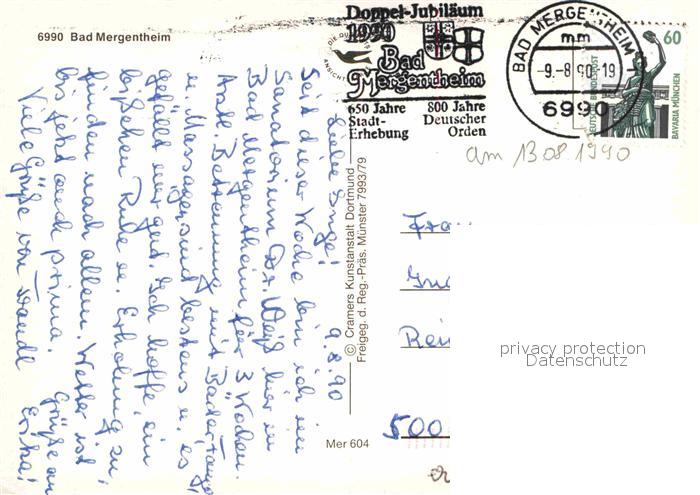 6990 Bad Mergentheim
Doppel-Jubiläum
1990
Bad
Mergentheim
650 Jahre 800 Jahre
Stadt- Deutscher
Erhebung Orden
BAD MERGENTHEIM
mm
-9.-8 90-19
6990
60
DEUTSCHE BUNDESPOST
BAVARIA MÜNCHEN
am 13.08.1990
9.8.90
Liebe Inge!
Seit dieser Woche bin ich im
Sanatorium Dr. Weiß hier in
Bad Mergentheim für 3 Wochen.
Ärztl. Betreuung mit Bädern,
u. Massagen sind bestens u. es
gefällt mir gut. Ich hoffe, ein
bißchen Ruhe u. Erholung zu
finden nach allem. Wetter ist
bis jetzt auch prima.
Viele Grüße von Grüße an
Erika!
© Cramers Kunstanstalt Dortmund
Freigeg. d. Reg.-Präs. Münster 7993/79
Mer 604
Fra
500
privacy protection
Datenschutz